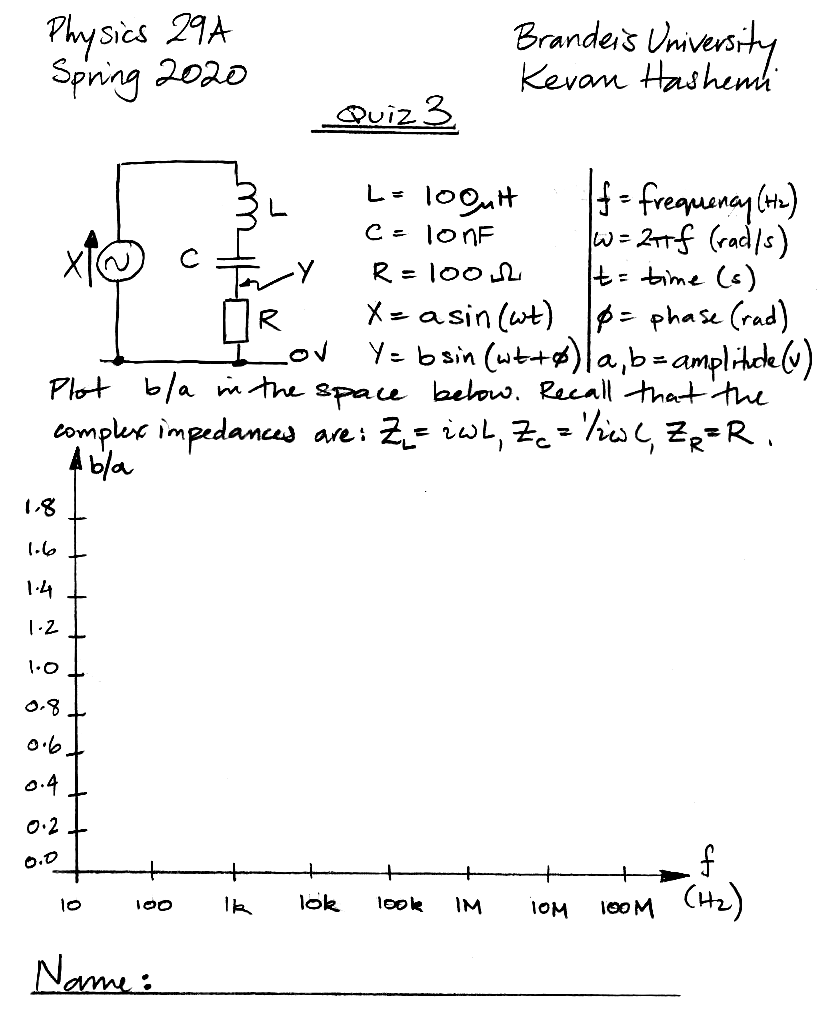 Physics 29A
Brandeis University
Spring 2020
Kevan Hashemi
Quiz 3
L
C
X
Y
R
0V
L = 100μH
C = 10nF
R = 100 Ω
X = a sin (ωt)
Y = b sin (ωt+ø)
f = frequency (Hz)
ω = 2πf (rad/s)
t = time (s)
ø = phase (rad)
a, b = amplitude (V)
Plot b/a in the space below. Recall that the
complex impedances are: Z_L = iωL, Z_C = 1/iωC, Z_R = R.
b/a
1.8
1.6
1.4
1.2
1.0
0.8
0.6
0.4
0.2
0.0
10 100 1k 10k 100k 1M 10M 100M
f
(Hz)
Name: